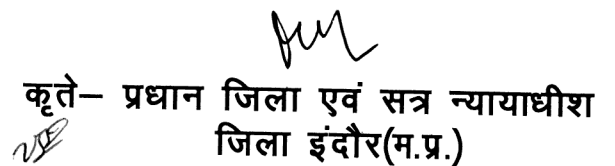 कृते– प्रधान जिला एवं सत्र न्यायाधीश
जिला इंदौर(म.प्र.)